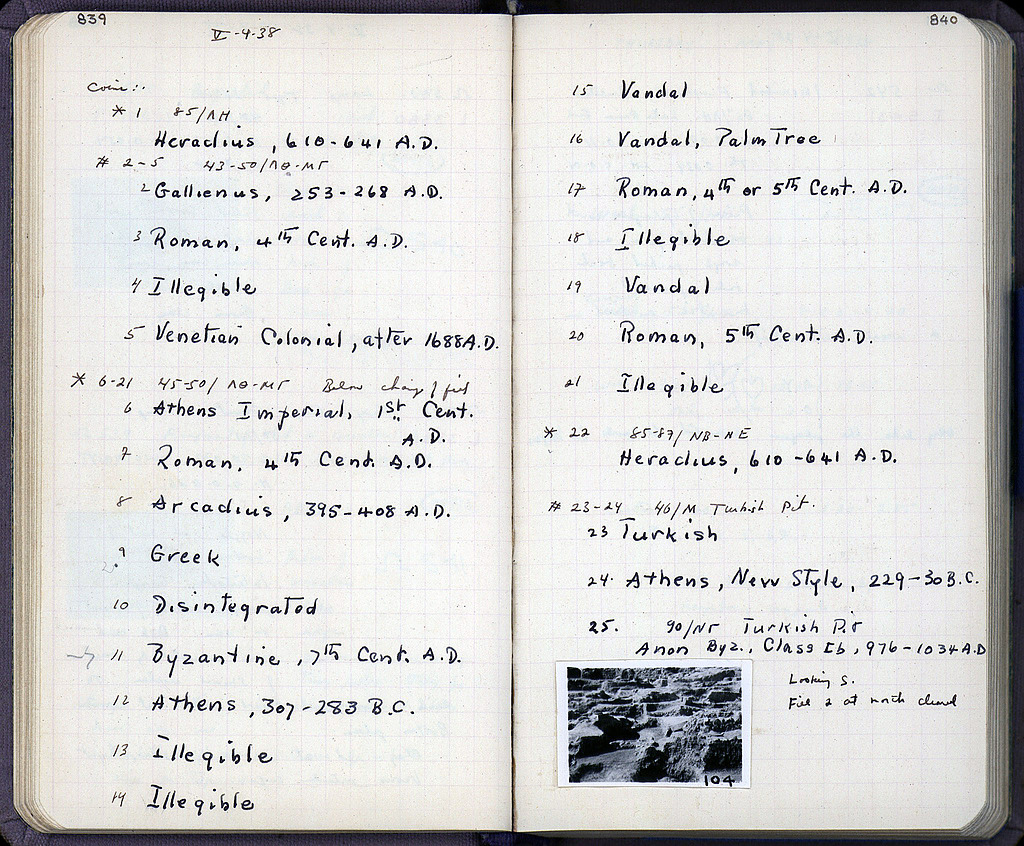 839
V-4-38
Coins:
* 1 85/ΛΗ
Heraclius, 610-641 A.D.
# 2-5 43-50/ΛΘ-ΜΓ
2 Gallienus, 253-268 A.D.
3 Roman, 4th Cent. A.D.
4 Illegible
5 Venetian Colonial, after 1688 A.D.
* 6-21 45-50/ΛΘ-ΜΓ Below
6 Athens Imperial, 1st Cent.
A.D.
7 Roman, 4th Cent. A.D.
8 Arcadius, 395-408 A.D.
9 Greek
10 Disintegrated
11 Byzantine, 7th Cent. A.D.
12 Athens, 307-283 B.C.
13 Illegible
14 Illegible
840
15 Vandal
16 Vandal, Palm Tree
17 Roman, 4th or 5th Cent. A.D.
18 Illegible
19 Vandal
20 Roman, 5th Cent. A.D.
21 Illegible
* 22 85-87/ΝΒ-ΝΕ
Heraclius, 610-641 A.D.
# 23-24 46/Μ Turkish Pit.
23 Turkish
24. Athens, New Style, 229-30 B.C.
25. 90/ΝΓ Turkish Pit
Anon Byz., Class Ib, 976-1034 A.D
Looking S.
at north
104